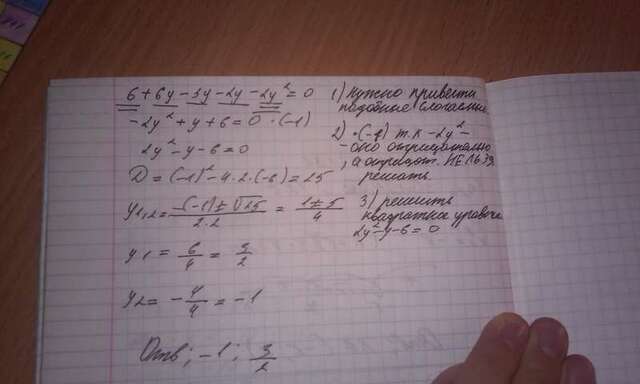 6 + 6y - 3y - 2y - 2y² = 0
-2y² + y + 6 = 0 · (-1)
2y² - y - 6 = 0
D = (-1)² - 4 · 2 · (-6) = 25
y1,2 = -(-1) ± √25 / 2 · 2 = 1 ± 5 / 4
y1 = 6/4 = 3/2
y2 = - 4/4 = -1
Отв; -1; 3/2
1) Нужно привести
подобные
2) ·(-1) т.к -2y² -
- оно отрицательно
, а отрицат. НЕЛЬЗЯ
решать.
3) решить
квадратное
2y² - y - 6 = 0